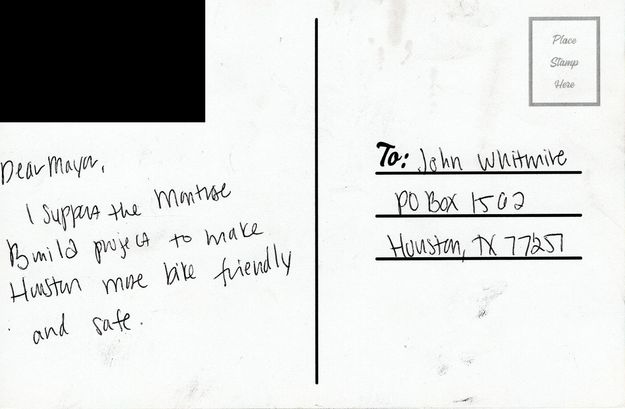 Dear Mayor,
I support the Montrose
Build project to make
Houston more bike friendly
and safe.
Place
Stamp
Here
To: John Whitmire
PO Box 1562
Houston, TX 77251